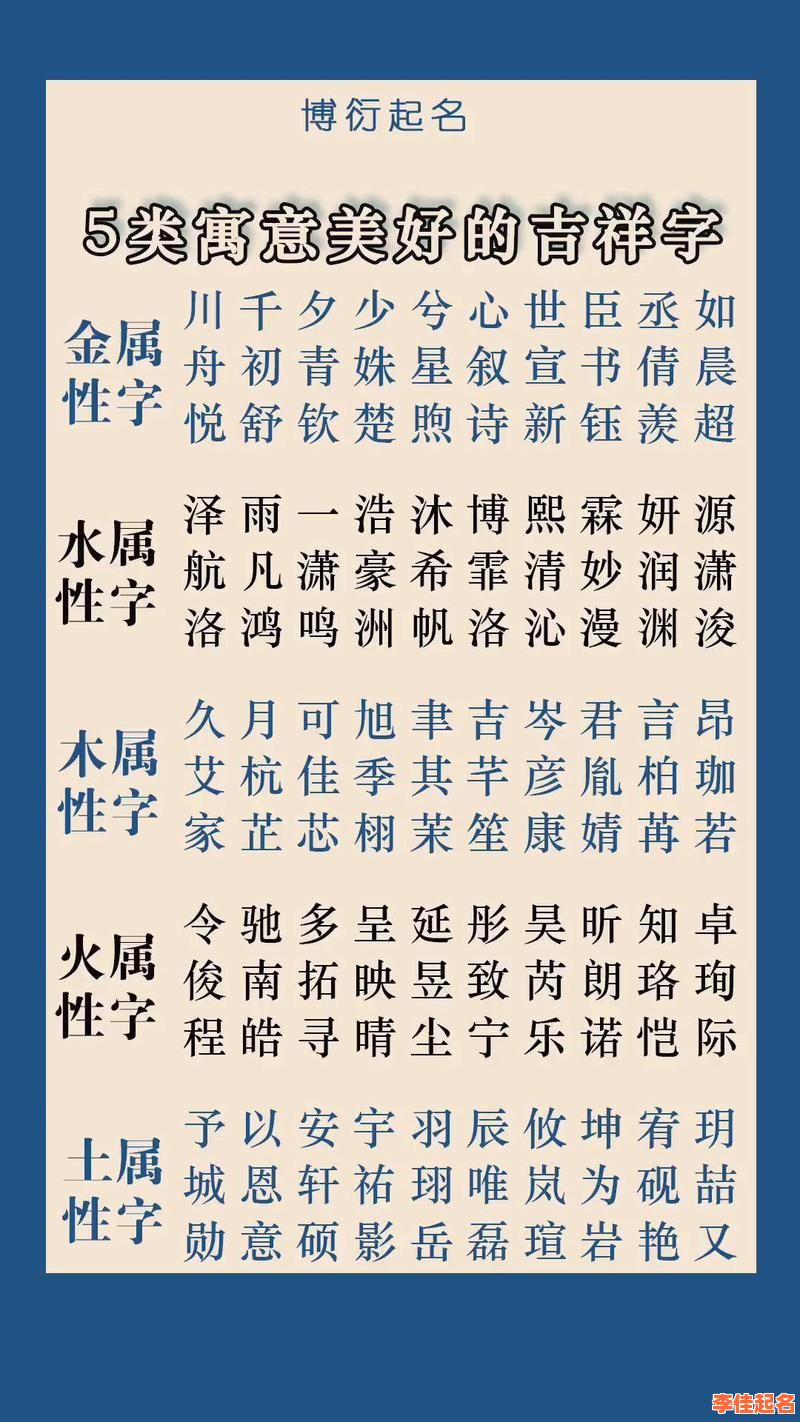 博衍起名
5类寓意美好的吉祥字
金属性字
川千夕少兮心世臣丞如
舟初青姝星叙宣书倩晨
悦舒钦楚煦诗新钰羡超
水属性字
泽雨一浩沐博熙霖妍源
航凡潇豪希霏清妙润潇
洛鸿鸣洲帆洛沁漫渊浚
木属性字
久月可旭聿吉岑君言昂
艾杭佳季其芊彦胤柏珈
家芷芯栩茉笙康婧苒若
火属性字
令驰多呈延彤昊昕知卓
俊南拓映昱致芮朗珞珣
程皓寻晴尘宁乐诺恺际
土属性字
予以安宇羽辰攸坤宥玥
城恩轩祐珝唯岚为砚喆
勋意硕影岳磊瑄岩艳又
李佳起名